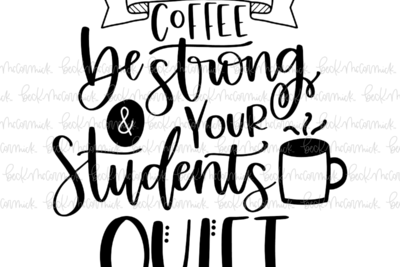 COFFEE
be strong
& YOUR
Students
QUIET